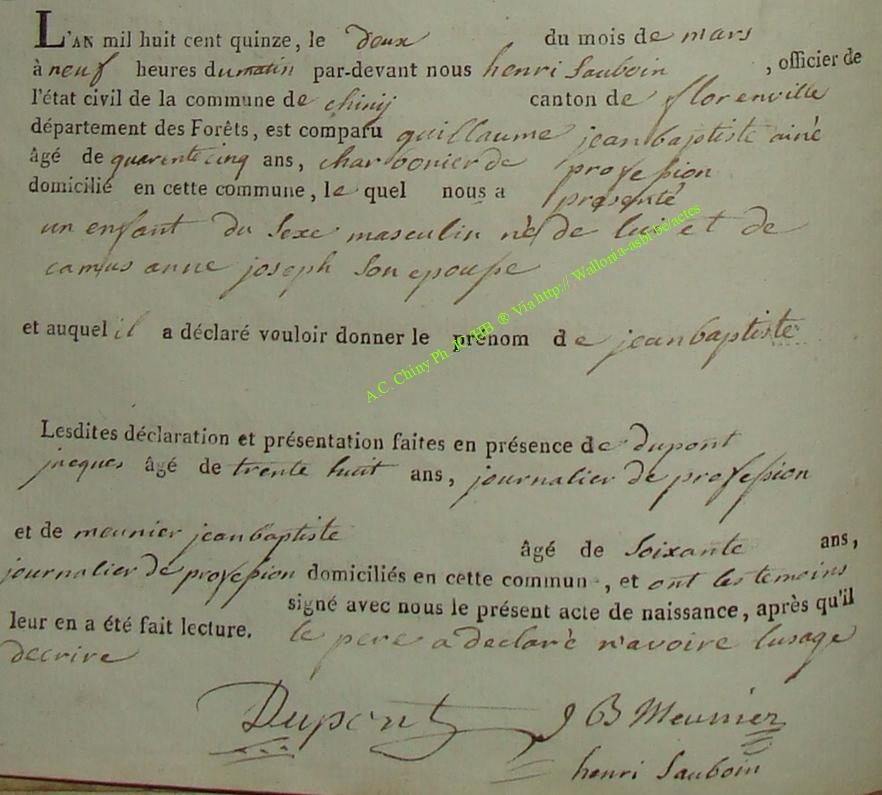 L'AN mil huit cent quinze, le deux du mois de mars
à neuf heures du matin par-devant nous henri Sauboin , officier de
l'état civil de la commune de chinij canton de florenville
département des Forêts, est comparu guillaume jeanbaptiste ainé
âgé de quarente cinq ans, charbonier de profession
domicilié en cette commune, le quel nous a présenté
un enfant du Sexe masculin né de lui et de
camus anne joseph Son epouse
et auquel il a déclaré vouloir donner le prénom de jeanbaptiste
A.C. Chiny Ph. JC HB ® Via http:// Wallonia-asbl.be/actes
Lesdites déclaration et présentation faites en présence de dupont
jacques âgé de trente huit ans, journalier de profession
et de meunier jeanbaptiste âgé de Soixante ans,
journalier de profession domiciliés en cette commun , et ont les temoins
signé avec nous le présent acte de naissance, après qu'il
leur en a été fait lecture. le pere a declaré n'avoire lusage
decrire
Dupont J B Meunier
henri Sauboin